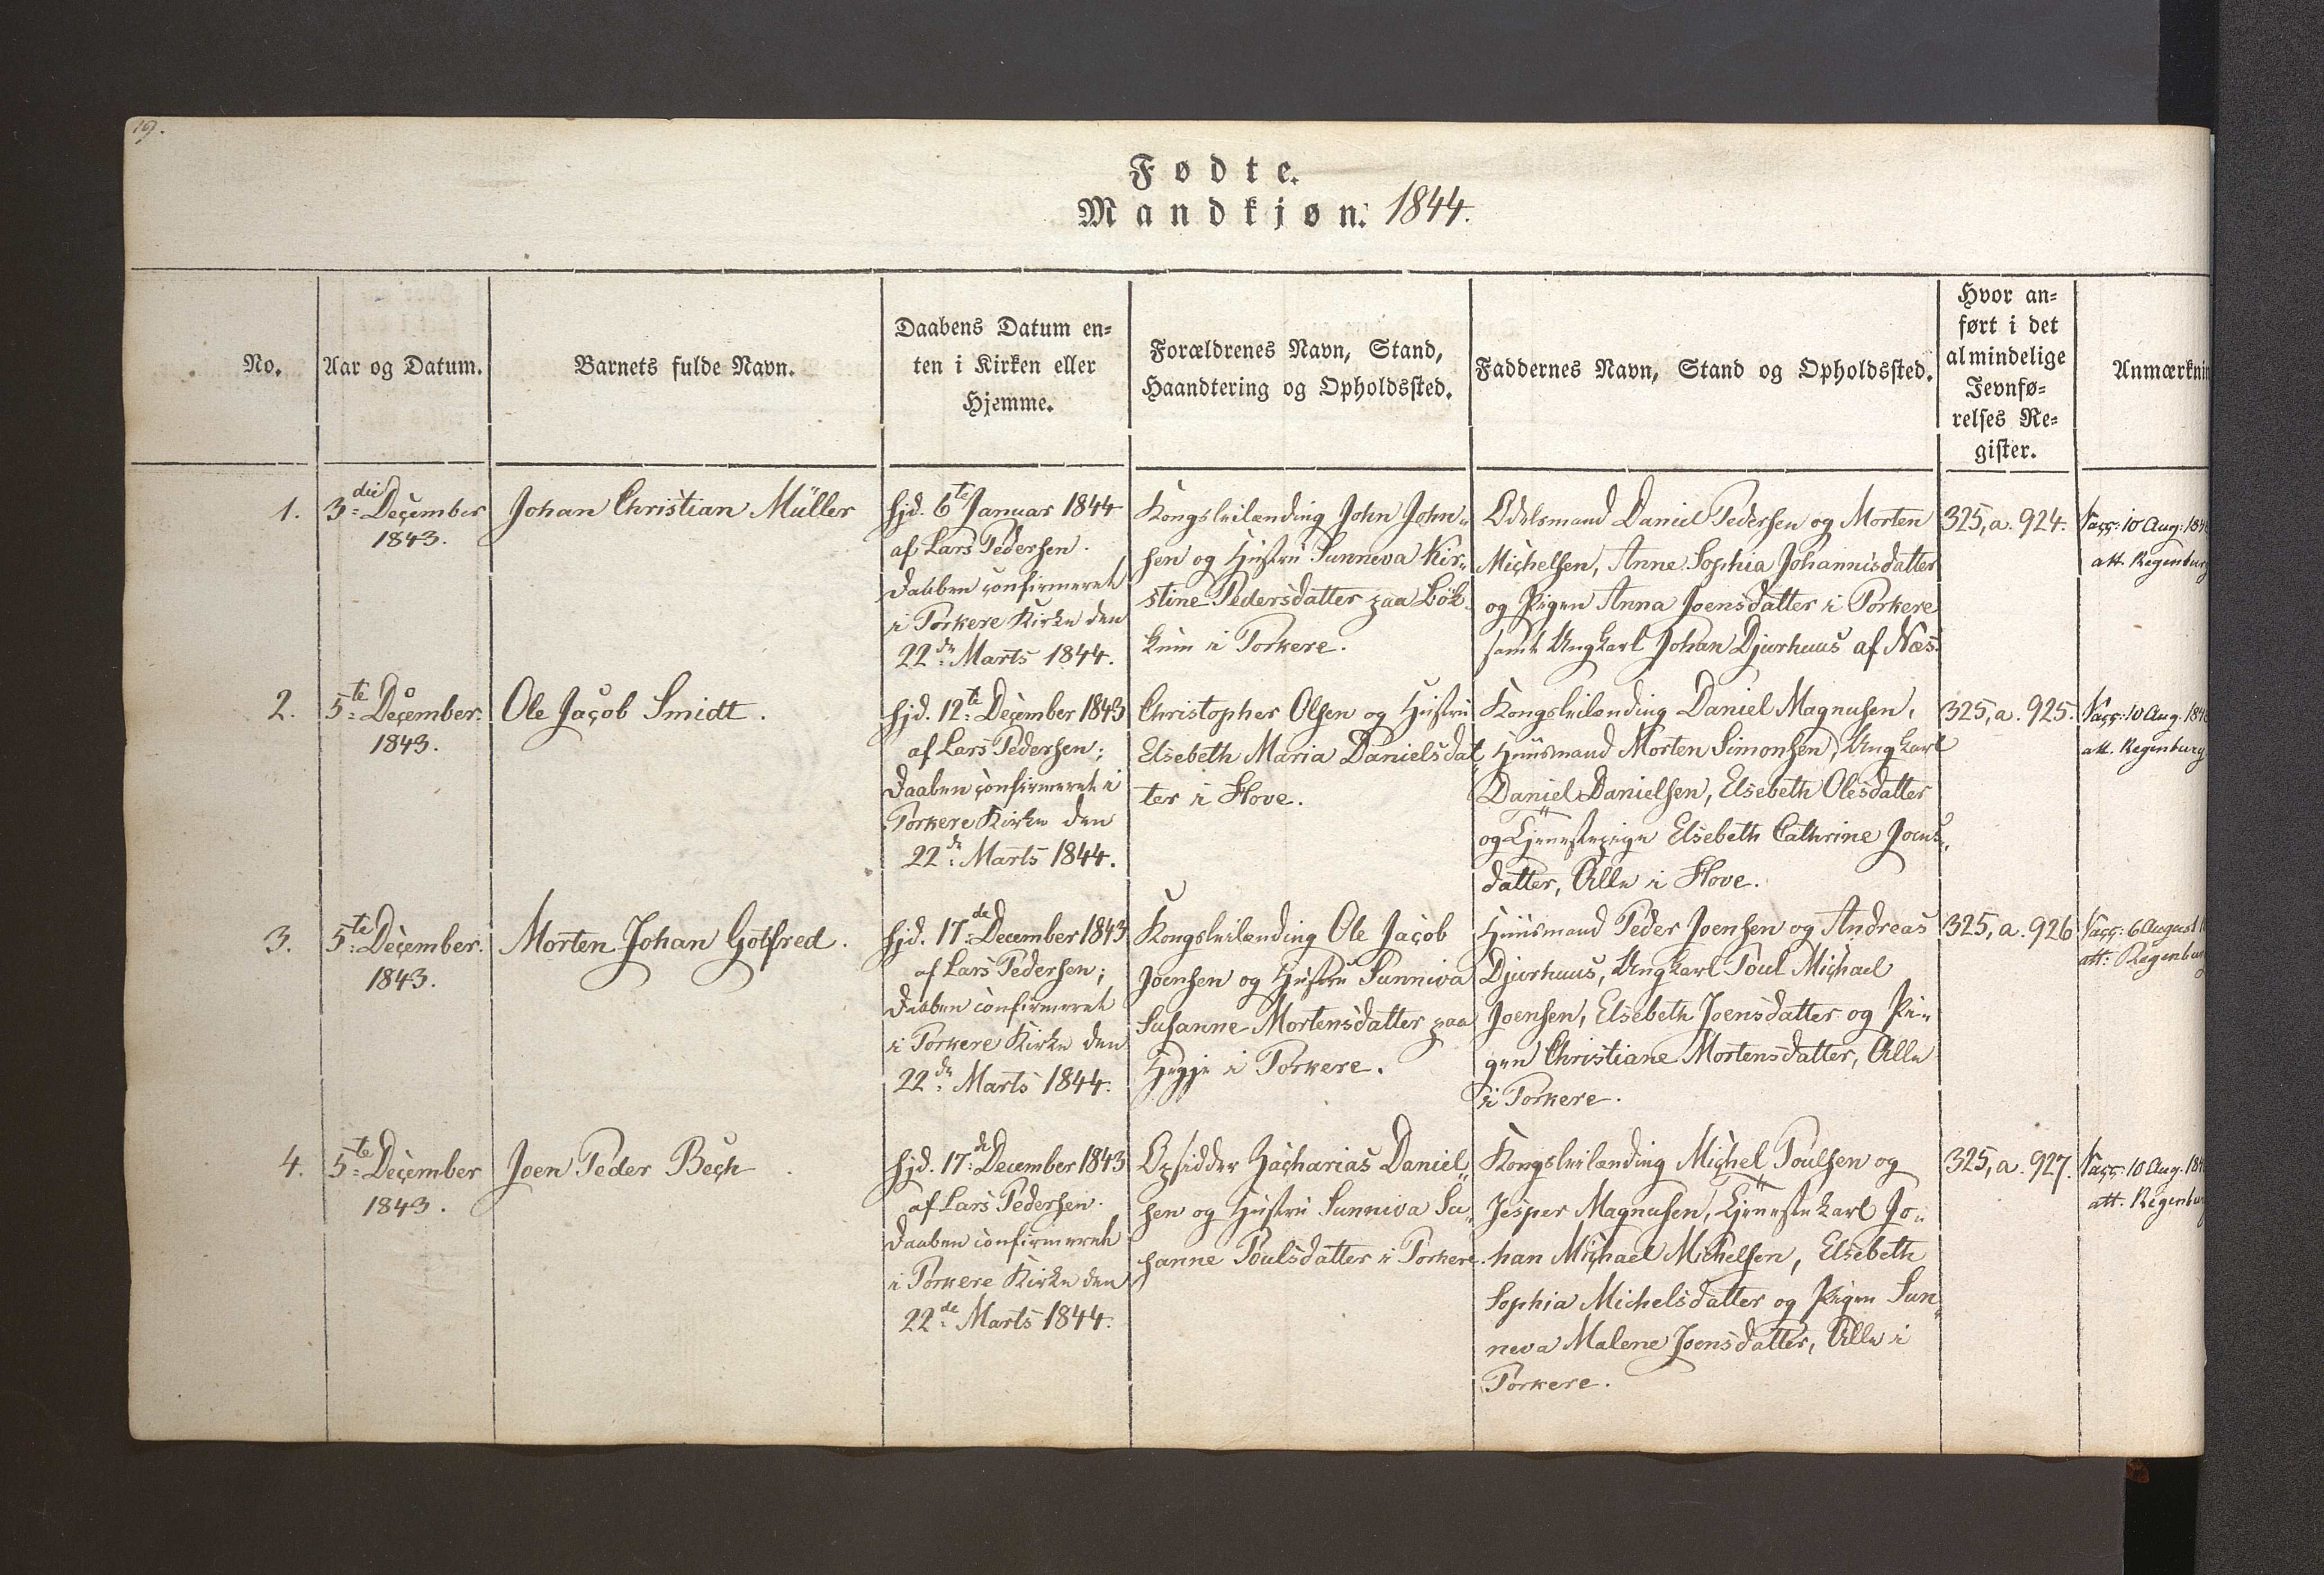 19.
Fødte.
Mandkjøn. 1844.
No.
Aar og Datum.
Barnets fulde Navn.
Daabens Datum en-
ten i Kirken eller
Hjemme.
Forældrenes Navn, Stand,
Haandtering og Opholdssted.
Faddernes Navn, Stand og Opholdssted.
Hvor an-
ført i det
almindelige
Jevnfø-
relses Re-
gister.
Anmærknin
1.
3die December
1843.
Johan Christian Müller
hjd. 6te Januar 1844
af Lars Pedersen.
Daaben confirmeret
i Porkere Kirke den
22de Marts 1844.
Kongsleilænding John John-
sen og Hustru Sunneva Kir-
stine Pedersdatter paa
i Porkere.
Odelsmand Daniel Pedersen og Morten
Michelsen, Anne Sophia Johannisdatter
og Pigen Anna Joensdatter i Porkere
samt Ungkarl Johan Djurhuus af Næs.
325, a. 924.
Vacc: 10 Aug: 184
att. Regenburg
2.
5te December.
1843.
Ole Jacob Smidt.
hjd. 12te December 1843
af Lars Pedersen;
Daaben confirmeret i
Porkere Kirke den
22de Marts 1844.
Christopher Olsen og Hustru
Elsebeth Maria Danielsdat-
ter i Hove.
Kongsleilænding Daniel Magnusen,
Huusmand Morten Simonsen, Ungkarl
Daniel Danielsen, Elsebeth Olesdatter
og Tjenestepige Elsebeth Cathrine Joens-
datter, Alle i Hove.
325, a. 925.
Vacc: 10 Aug. 184
att. Regenburg
3.
5te December.
1843.
Morten Johan Gotfred.
hjd. 17de December 1843
af Lars Pedersen;
Daaben confirmeret
i Porkere Kirke den
22de Marts 1844.
Kongsleilænding Ole Jacob
Joensen og Hustru Sunniva
Susanne Mortensdatter paa
i Porkere.
Huusmand Peder Joensen og Andreas
Djurhuus, Ungkarl Poul Michael
Joensen, Elsebeth Joensdatter og Pi-
gen Christiane Mortensdatter, Alle
i Porkere.
325, a. 926
Vacc: 6 August
att: Regenburg
4.
5te December
1843.
Joen Peder Bech.
hjd. 17de December 1843
af Lars Pedersen.
Daaben confirmeret
i Porkere Kirke den
22de Marts 1844.
Opsidder Zacharias Daniel-
sen og Hustru Sunniva Su-
sanne Poulsdatter i Porkere.
Kongsleilænding Michel Poulsen og
Jesper Magnusen, Tjenestekarl Jo-
han Michael Michelsen, Elsebeth
Sophia Michelsdatter og Pigen Sun-
neva Malene Joensdatter, Alle i
Porkere.
325, a. 927.
Vacc: 10 Aug. 184
att. Regenbur